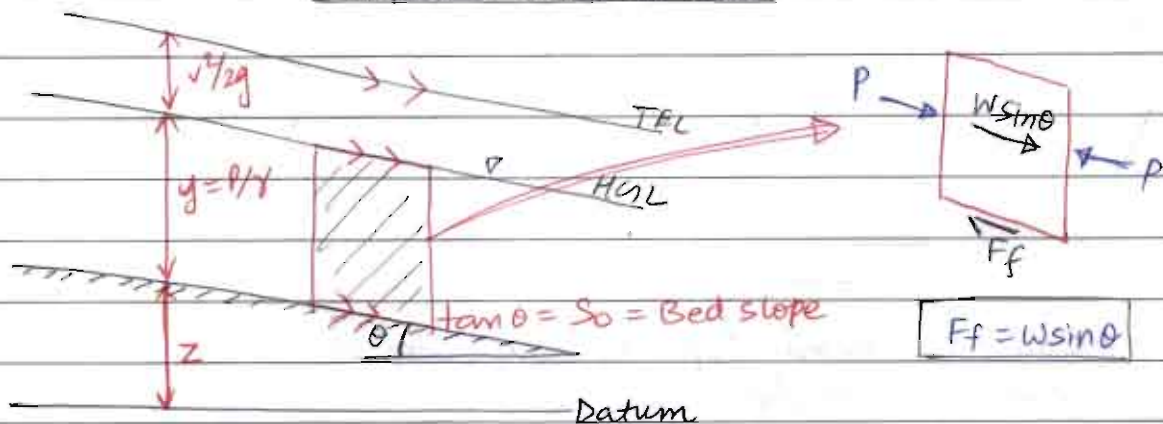 v²/2g
TEL
y = P/γ
HGL
Z
θ
tan θ = S₀ = Bed slope
Datum
P
W sin θ
P
Ff
Ff = W sin θ